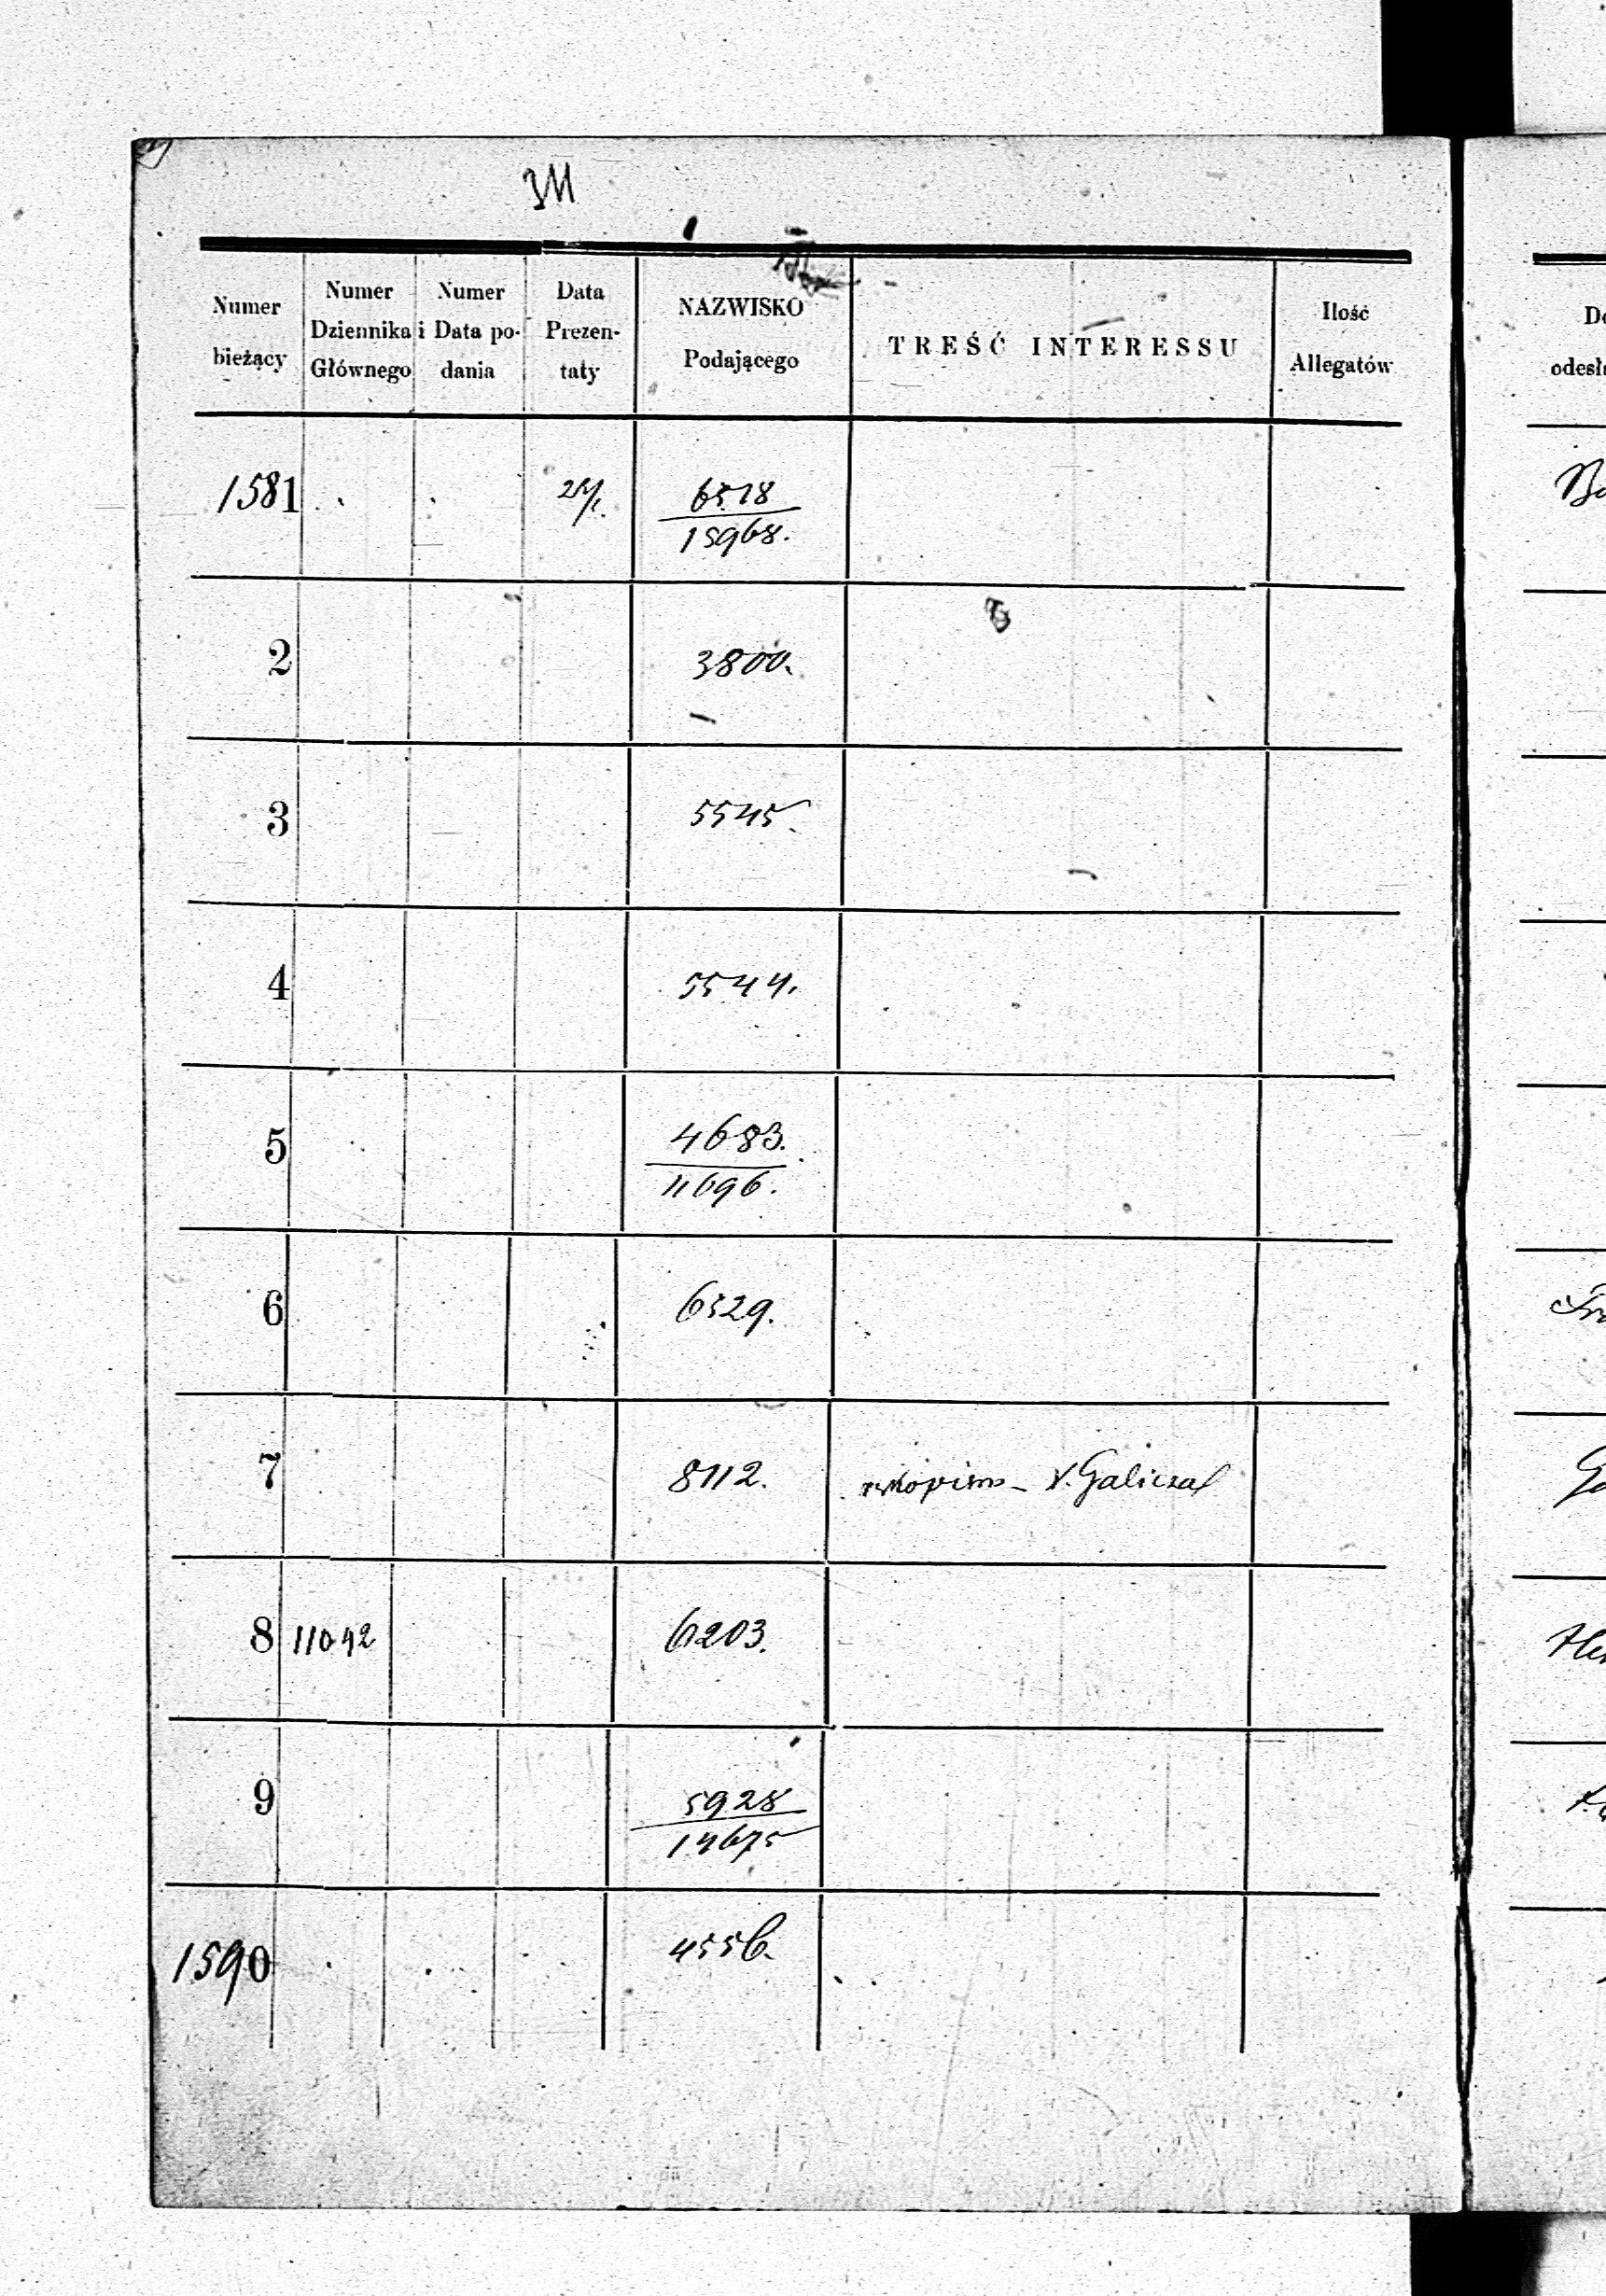 Numer bieżący
Numer Dziennika Głównego
Numer i Data podania
Data Prezentaty
NAZWISKO Podającego
TREŚĆ INTERESSU
Ilość Allegatów
1581 6518
15968.
2 3800.
3 5545.
4 5544.
5 4683.
11696.
6 6529.
7 8112. V. Galiczal
8 11042 6203.
9 5928
14675
1590 4556.